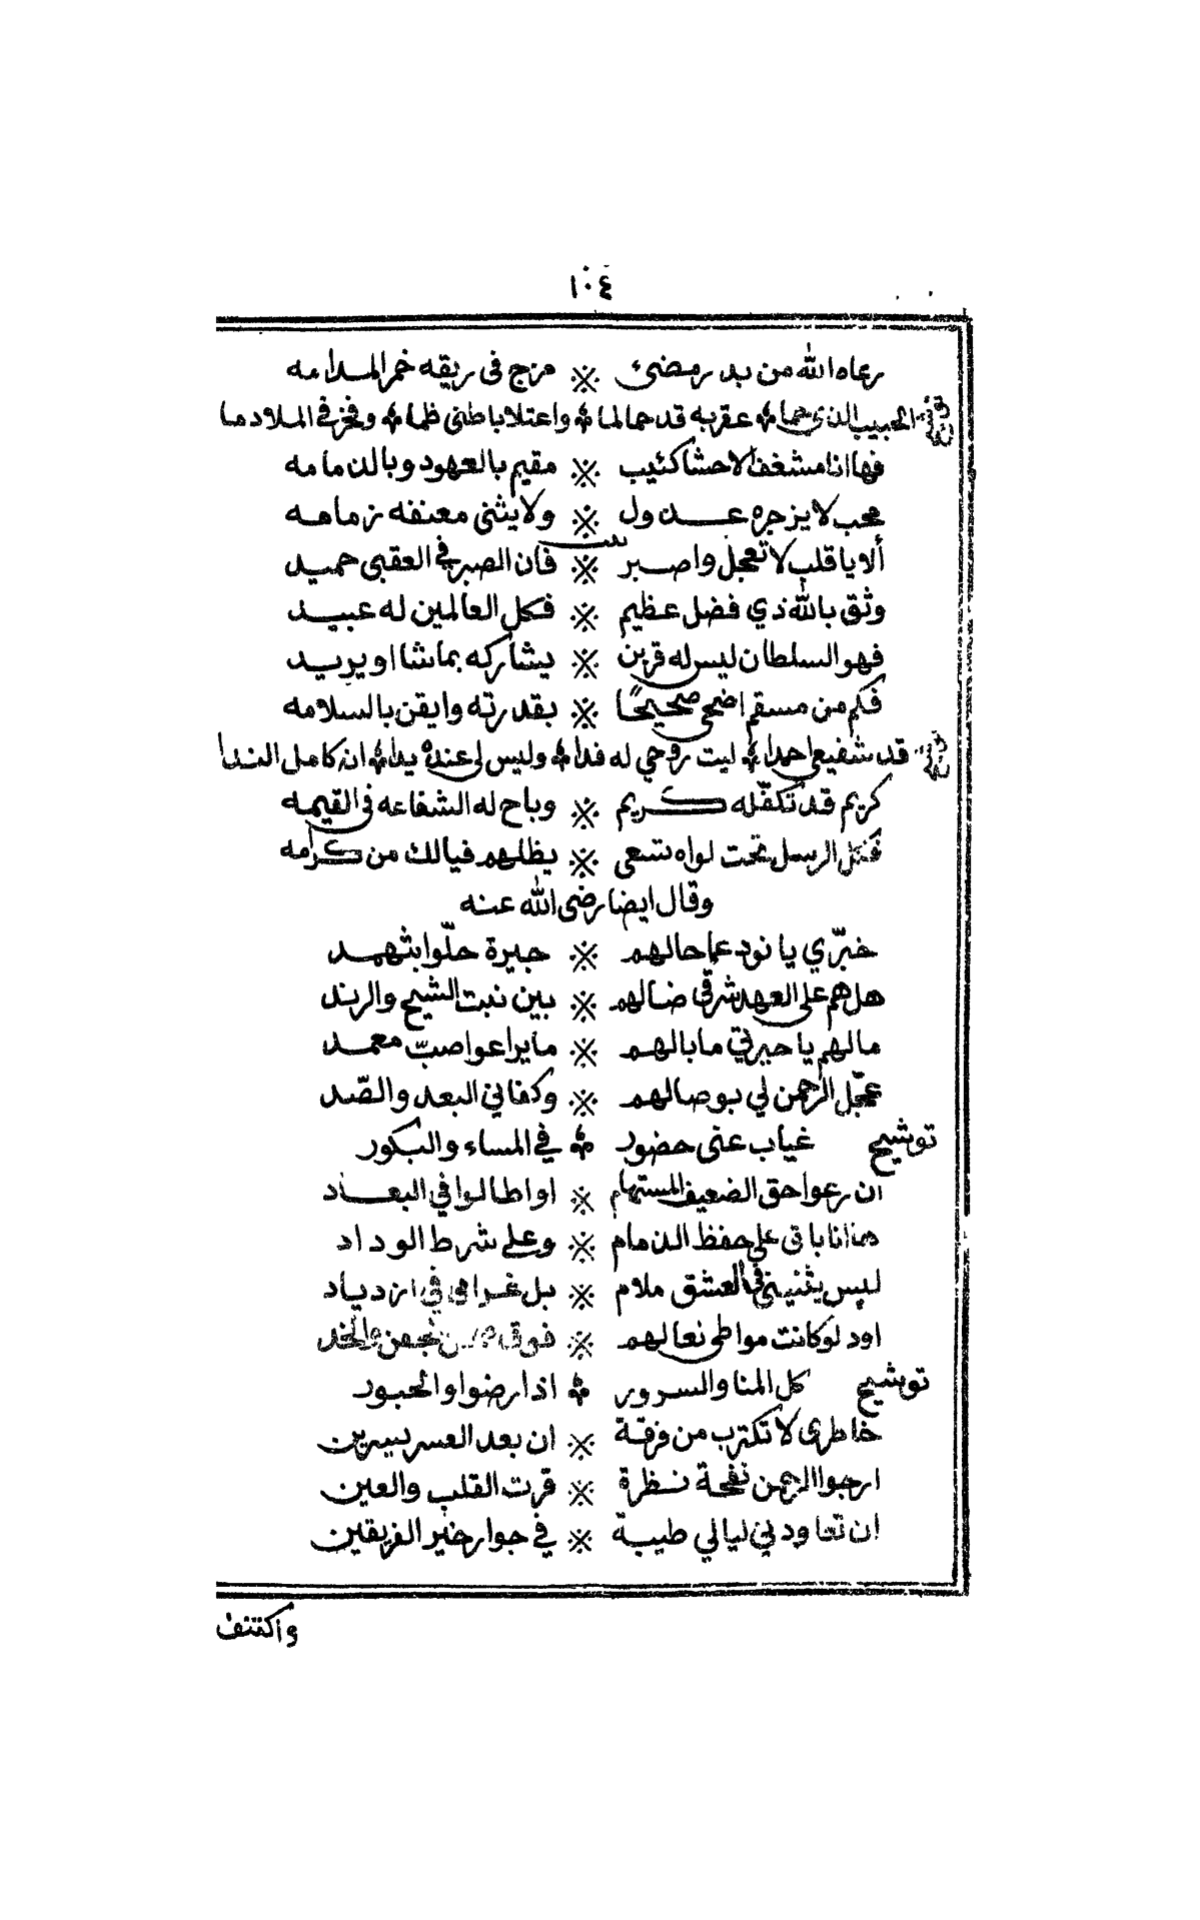 ١٠٤
رعاه الله من بدر مضىء ※ مزج فى ريقه خمر المدامه
الحبيب الذى حما ※ عقربه قد حمالما ※ واعتلا باطنى ظما ※ وفخر فى الملا دما
فها انا مشغف الاحشا كئيب ※ مقيم بالعهود وبالذمامه
محب لا يزجره عــذول ※ ولا يثنى معنفه زمامـه
بيت
ألا يا قلب لا تعجل واصـبر ※ فان الصبر في العقبى حميد
وثق بالله ذي فضل عظيم ※ فكل العالمين له عبيـد
فهو السلطان ليس له قرين ※ يشاركه بماشا او يريـد
فكم من مسقم اضحى صحيحًا ※ بقدرته وايقن بالسلامه
قد شفيعى احمدا ※ ليت روحي له فدا ※ وليس لى عنده يدا ※ انه كامل الندا
كريم قد تكفّله كــريم ※ وباح له الشفاعه فى القيمه
فكل الرسل تحت لواه تسعى ※ يظلهم فيالك من كرامه
وقال ايضا رضى الله عنه
خبّري يا نود عما حالهم ※ جيرة حلّوا بثهمـد
هل هم على العهد شرقي ضالهم ※ بين نبت الشيح والرند
مالهم يا حيرتي ما بالهـم ※ ما يراعوا صبّ معمـد
عجّل الرحمن لي بوصالهم ※ وكفاني البعد والصّد
توشيح غياب عنى حضور ※ في المساء والبكور
ان رعوا حق الضعيف المستهام ※ او اطالوا في البعـاد
ها انا باقى على حفظ الذمام ※ وعلى شرط الوداد
ليس يثنيني في العشق ملام ※ بل غرامى في ازدياد
اود لو كانت مواطى نعالهم ※ فوق من جفن والخد
توشيح كل المنا والسرور ※ اذا رضوا والحبور
خاطرى لا تكترب من فرقة ※ ان بعد العسر يسرين
ارجوا الرحمن نفحة نظرة ※ قرت القلب والعين
ان تعاودني ليالي طيبة ※ في جوار خير الفريقين
واكتنف